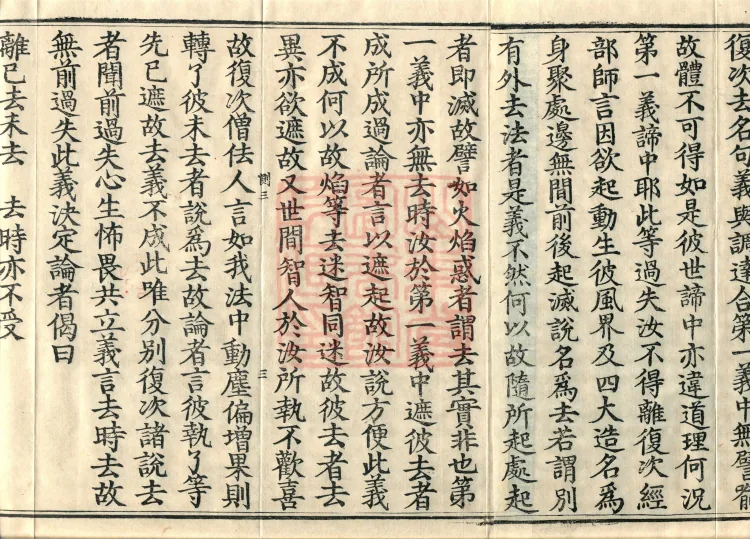 復次去名句義與調達合第一義中無譬體
故體不可得如是彼世諦中亦違道理何況
第一義諦中耶此等過失汝不得離復次經
部師言因欲起動生彼風界及四大造名爲
身聚處邊無間前後起滅說名爲去若謂別
有外去法者是義不然何以故隨所起處起
者即滅故譬如火焰惑者謂去其實非也第
一義中亦無去時汝於第一義中遮彼去者
成所成過論者言以遮起故汝說方便此義
不成何以故焰等去迷智同迷故彼去者去
異亦欲遮故又世間智人於汝所執不歡喜
惻三 三
故復次僧佉人言如我法中動塵偏增果則
轉了彼未去者說爲去故論者言彼執了等
先已遮故去義不成此唯分別復次諸說去
者聞前過失心生怖畏共立義言去時去故
無前過失此義決定論者偈曰
離已去未去 去時亦不受